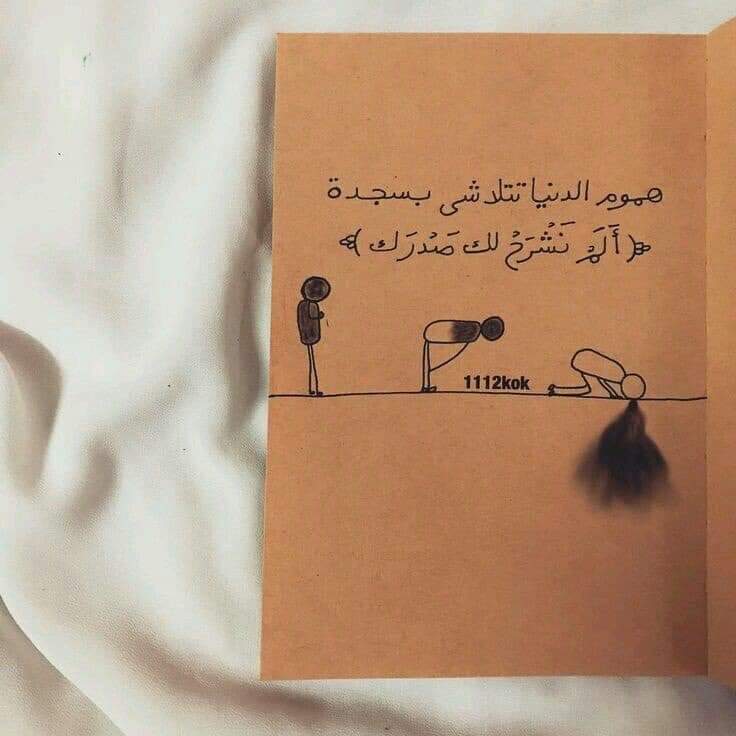 هموم الدنيا تتلاشى بسجدة
﴿أَلَمْ نَشْرَحْ لك صَدْرَك﴾
1112kok